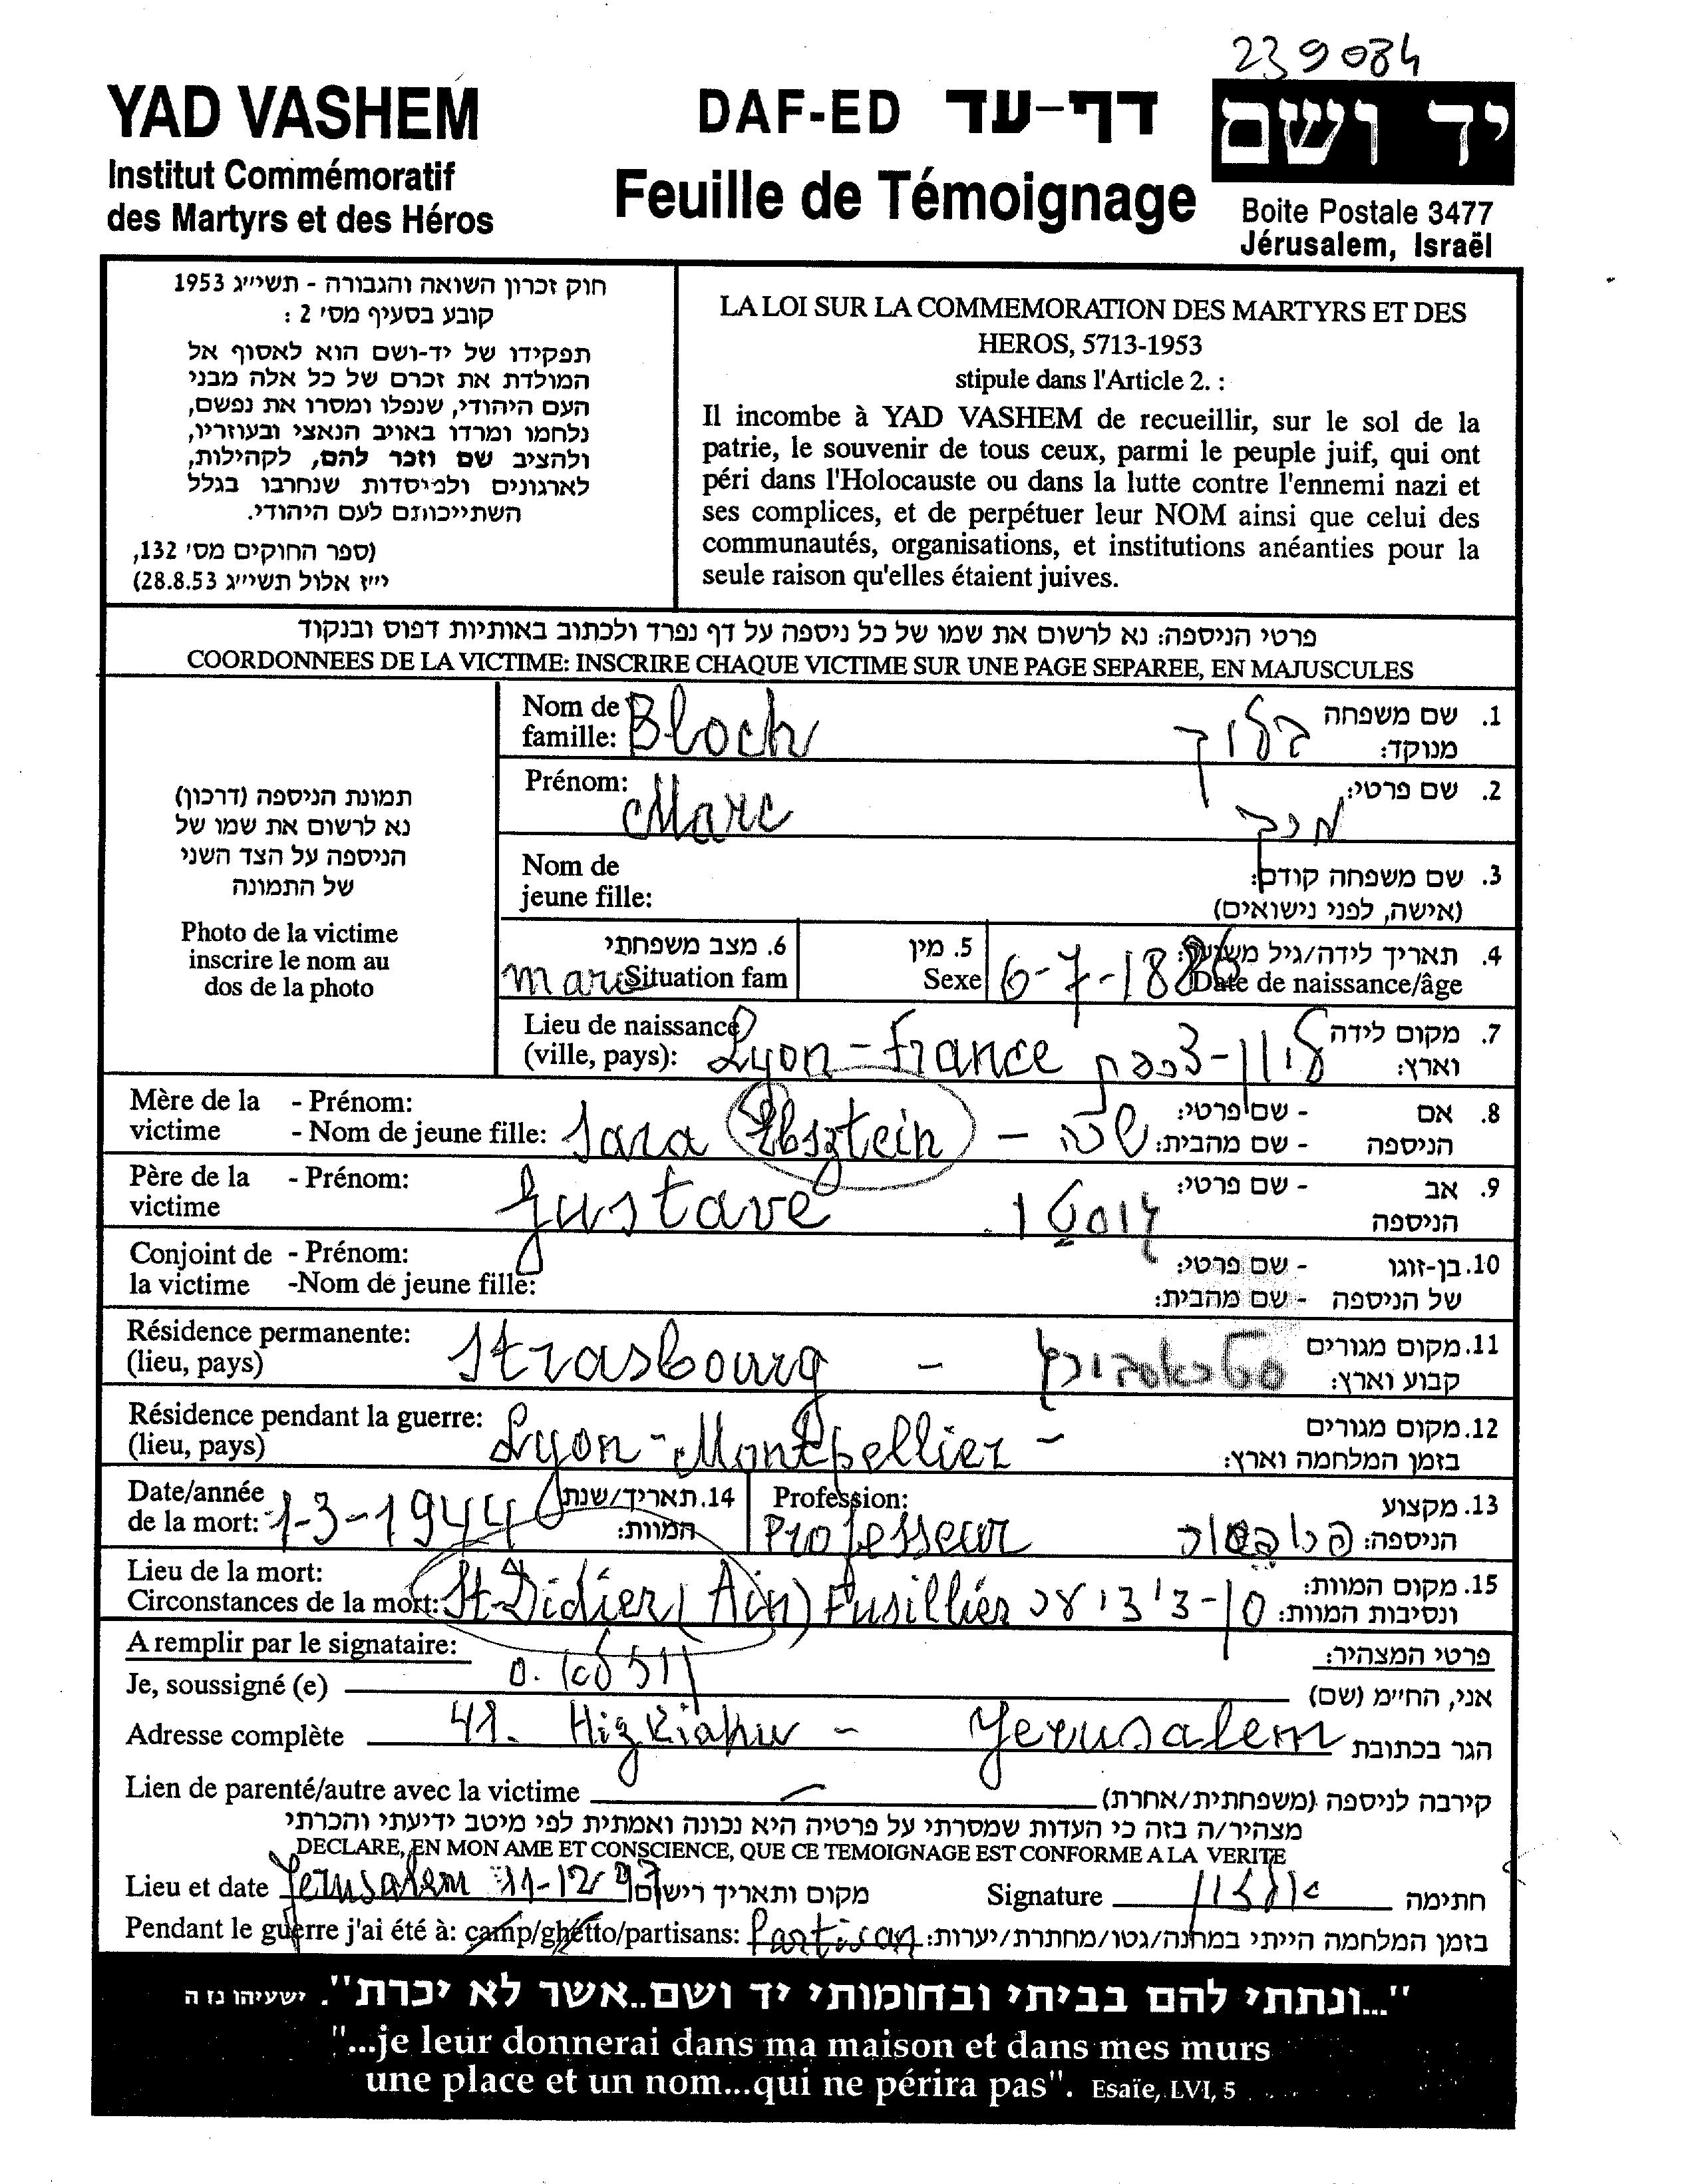 239084
YAD VASHEM
Institut Commémoratif
des Martyrs et des Héros
DAF-ED דף-עד
Feuille de Témoignage
יד ושם
Boite Postale 3477
Jérusalem, Israël
חוק זכרון השואה והגבורה - תשי״ג 1953
קובע בסעיף מס׳ 2 :
תפקידו של יד-ושם הוא לאסוף אל
המולדת את זכרם של כל אלה מבני
העם היהודי, שנפלו ומסרו את נפשם,
נלחמו ומרדו באויב הנאצי ובעוזריו,
ולהציב שם וזכר להם, לקהילות,
לארגונים ולמיסדות שנחרבו בגלל
השתייכותם לעם היהודי.
(ספר החוקים מס׳ 132,
י״ז אלול תשי״ג 28.8.53)
LA LOI SUR LA COMMEMORATION DES MARTYRS ET DES
HEROS, 5713-1953
stipule dans l'Article 2. :
Il incombe à YAD VASHEM de recueillir, sur le sol de la
patrie, le souvenir de tous ceux, parmi le peuple juif, qui ont
péri dans l'Holocauste ou dans la lutte contre l'ennemi nazi et
ses complices, et de perpétuer leur NOM ainsi que celui des
communautés, organisations, et institutions anéanties pour la
seule raison qu'elles étaient juives.
פרטי הניספה: נא לרשום את שמו של כל ניספה על דף נפרד ולכתוב באותיות דפוס ובנקוד
COORDONNEES DE LA VICTIME: INSCRIRE CHAQUE VICTIME SUR UNE PAGE SEPAREE, EN MAJUSCULES
תמונת הניספה (דרכון)
נא לרשום את שמו של
הניספה על הצד השני
של התמונה
Photo de la victime
inscrire le nom au
dos de la photo
Nom de famille: Bloch בלוך 1. שם משפחה מנוקד:
Prénom: Marc מרק 2. שם פרטי:
Nom de jeune fille: 3. שם משפחה קודם:
(אישה, לפני נישואים)
6. מצב משפחתי Situation fam marié
5. מין Sexe
6-7-1886 4. תאריך לידה/גיל משוער: Date de naissance/âge
Lieu de naissance (ville, pays): Lyon-France ליון-צרפת 7. מקום לידה וארץ:
Mère de la victime - Prénom: - Nom de jeune fille: Sara Ebsztein - שרה - שם פרטי: - שם מהבית: 8. אם הניספה
Père de la victime - Prénom: Gustave גוסטו. - שם פרטי: 9. אב הניספה
Conjoint de la victime - Prénom: -Nom de jeune fille: - שם פרטי: - שם מהבית: 10. בן-זוגו של הניספה
Résidence permanente: (lieu, pays) Strasbourg - סטראסבורג 11. מקום מגורים קבוע וארץ:
Résidence pendant la guerre: (lieu, pays) Lyon-Montpellier - 12. מקום מגורים בזמן המלחמה וארץ:
Date/année de la mort: 1-3-1944 14. תאריך/שנת המוות:
Profession: Professeur פרופסור 13. מקצוע הניספה:
Lieu de la mort: Circonstances de la mort: St-Didier (Ain) Fusilliés 15. מקום המוות: ונסיבות המוות:
A remplir par le signataire: פרטי המצהיר:
Je, soussigné (e) אני, החיימ (שם)
Adresse complète 41. Hizkiahu - Jerusalem הגר בכתובת
Lien de parenté/autre avec la victime - קירבה לניספה (משפחתית/אחרת)
מצהיר/ה בזה כי העדות שמסרתי על פרטיה היא נכונה ואמתית לפי מיטב ידיעתי והכרתי
DECLARE, EN MON AME ET CONSCIENCE, QUE CE TEMOIGNAGE EST CONFORME A LA VERITE
Lieu et date Jerusalem 11-12 97 מקום ותאריך רישום Signature חתימה
Pendant le guerre j'ai été à: camp/ghetto/partisans: Partisan בזמן המלחמה הייתי במחנה/גטו/מחתרת/יערות:
"...ונתתי להם בביתי ובחומותי יד ושם..אשר לא יכרת". ישעיהו נו ה
"...je leur donnerai dans ma maison et dans mes murs
une place et un nom...qui ne périra pas". Esaïe, LVI, 5